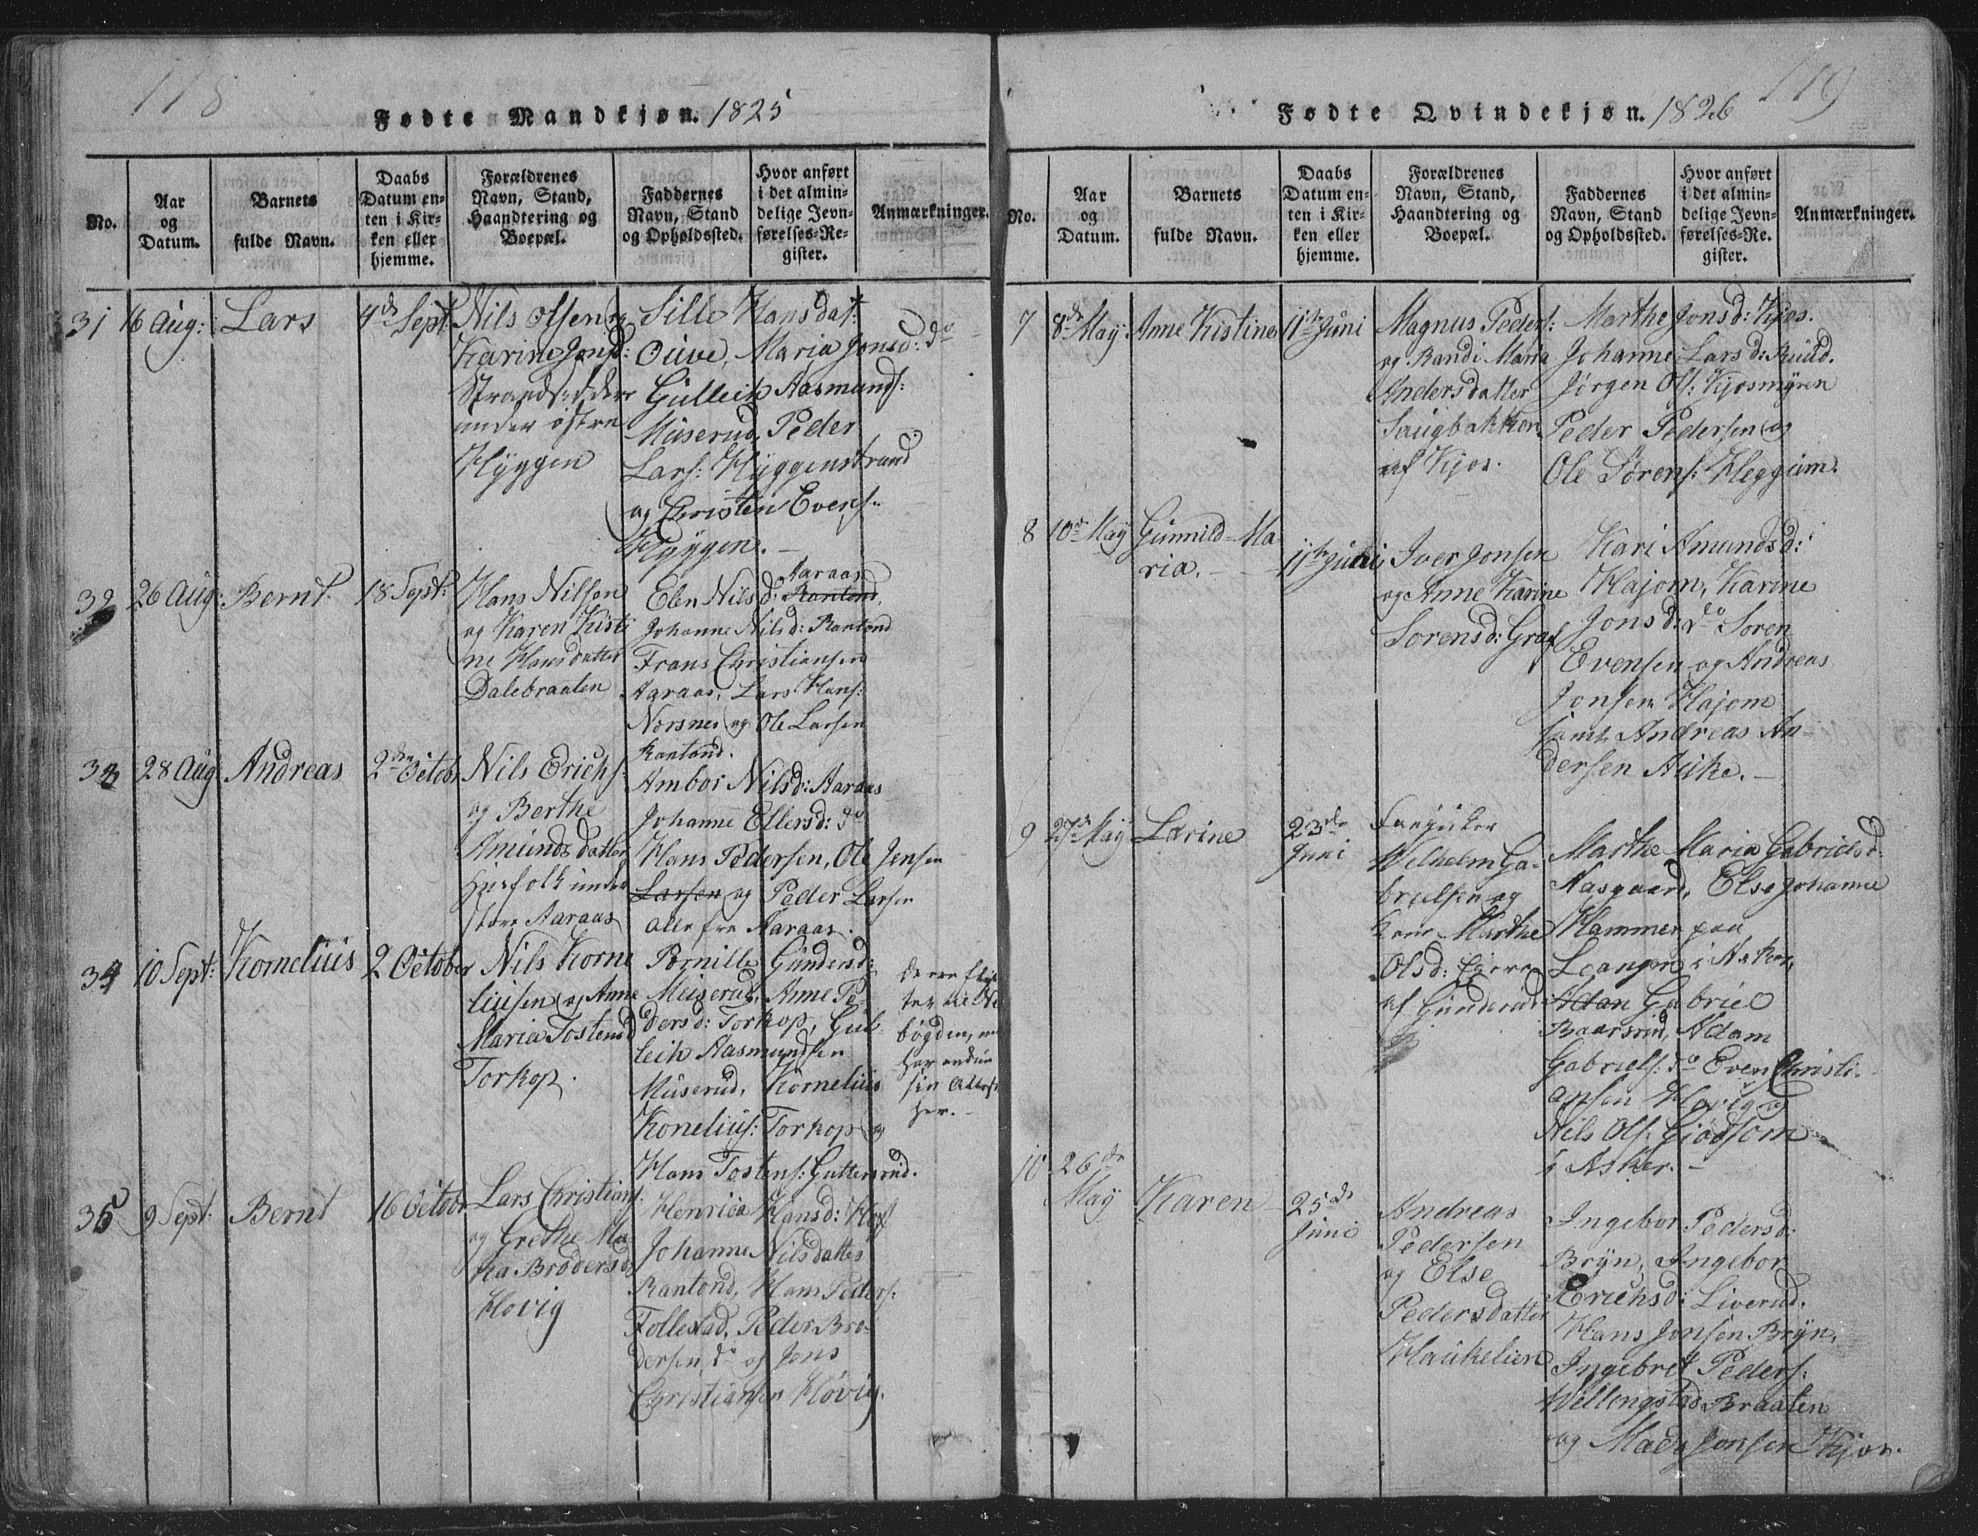 118
Fødte Mandkjøn. 1825
No.
Aar
og
Datum.
Barnets
fulde Navn.
Daabs
Datum en-
ten i Kir-
ken eller
hjemme.
Forældrenes
Navn, Stand,
Haandtering og
Boepæl.
Faddernes
Navn, Stand
og Opholdssted.
Hvor anført
i det almin-
delige Jevn-
førelses-Re-
gister.
Anmærkninger.
31
16 Aug:
Lars
4de Sept
Nils Olsen og
Karine Jonsd:
under østre
Hyggen
Sille Hansdat:
Ouve, Maria Jonsd: do
Gulleik Aasmunds:
Muserud, Peder
Lars: Hyggenstrand
og Christen Evens:
Hyggen. -
32
26 Aug:
Bernt
18 Sept:
Hans Nilsen
og Karen Kisti
ne Hansdatter
Dalebraaten
Aaraas
Elen Nilsd: Rantond,
Johanne Nilsd: Rantond
Frans Christiansen
Aaraas, Lars Hans:
Norsnes og Ole Larsen
Rantond.
33
28 Aug
Andreas
2den Octob
Nils Erichs:
og Berthe
Amunds datter
Husfolk under
store Aaraas
Ambor Nilsd: Aaraas
Johanne Ellersd: do
Hans Pedersen, Ole Jensen
Larsen og Peder Larsen
alle fra Aaraas.
34
10 Sept:
Kornelius
2 October
Nils Korne
liusen og Anne
Maria Tostensd
Torkop.
Pernille Gundersd:
Muserud, Anne Pe
dersd: Torkop, Gul-
leik Aasmundsen
Muserud, Kornelius
Kornelius: Torkop og
Hans Tostens: Guttersrud.
bøgden,
her. -
35
9 Sept:
Bernt
16 Octobr
Lars Christians:
og Grethe Ma
ria Brodersd
Hovig
Henrica Hansd: Hof
Johanne Nilsdatter
Rantond, Hans Peders:
Follestad, Peder Bro-
dersen do og Jens
Christiansen Hovig.
119
Fødte Qvindekjøn. 1826
No.
Aar
og
Datum.
Barnets
fulde Navn.
Daabs
Datum en-
ten i Kir-
ken eller
hjemme.
Forældrenes
Navn, Stand,
Haandtering og
Boepæl.
Faddernes
Navn, Stand
og Opholdssted.
Hvor anført
i det almin-
delige Jevn-
førelses-Re-
gister.
Anmærkninger.
7
8de May
Anne Kistine
11te Juni
Magnus Peders:
og Randi Maria
Andersdatter
Saugbakken
af Kjos.
Marthe Jonsd: Kjos.
Johanne Larsd: Ruud.
Jørgen Ols: Kjosmyren
Peder Pedersen og
Ole Sørens: Heggum.
8
10de May
Gunnild Ma
ria. -
11te Juni
Iver Jonsen
og Anne Karine
Sorensd: Graf
Kari Amundsd:
Hajom, Karine
Jonsd: do Soren
Evensen og Andreas
Jonsen Hajom
samt Andreas An-
dersen Auke. -
9
27de May
Larine
23de
Juni
Wilhelm Ga-
brielsen og
Kone Marthe
Olsd: Egere
af Gunderud
Marthe Maria Gabrielsd:
Aasgaard, Else Johanne
Hammer paa
Leangen i Asker,
Adan Gabriel
Baarsrud, Adam
Gabriels: do Even Christi-
ansen Hovig og
Nils Ols: Gjodsom
i Asker. -
10
26de
May
Karen
25de
Juni
Andreas
Pedersen
og Else
Pedersdatter
Haukelien
Ingebor Pedersd:
Bryn, Ingebor
Erichsd: Liverud.
Hans Jonsen Bryn,
Ingebret Peders:
Wellengstad Braaten
og Mads Jonsen Kjos.